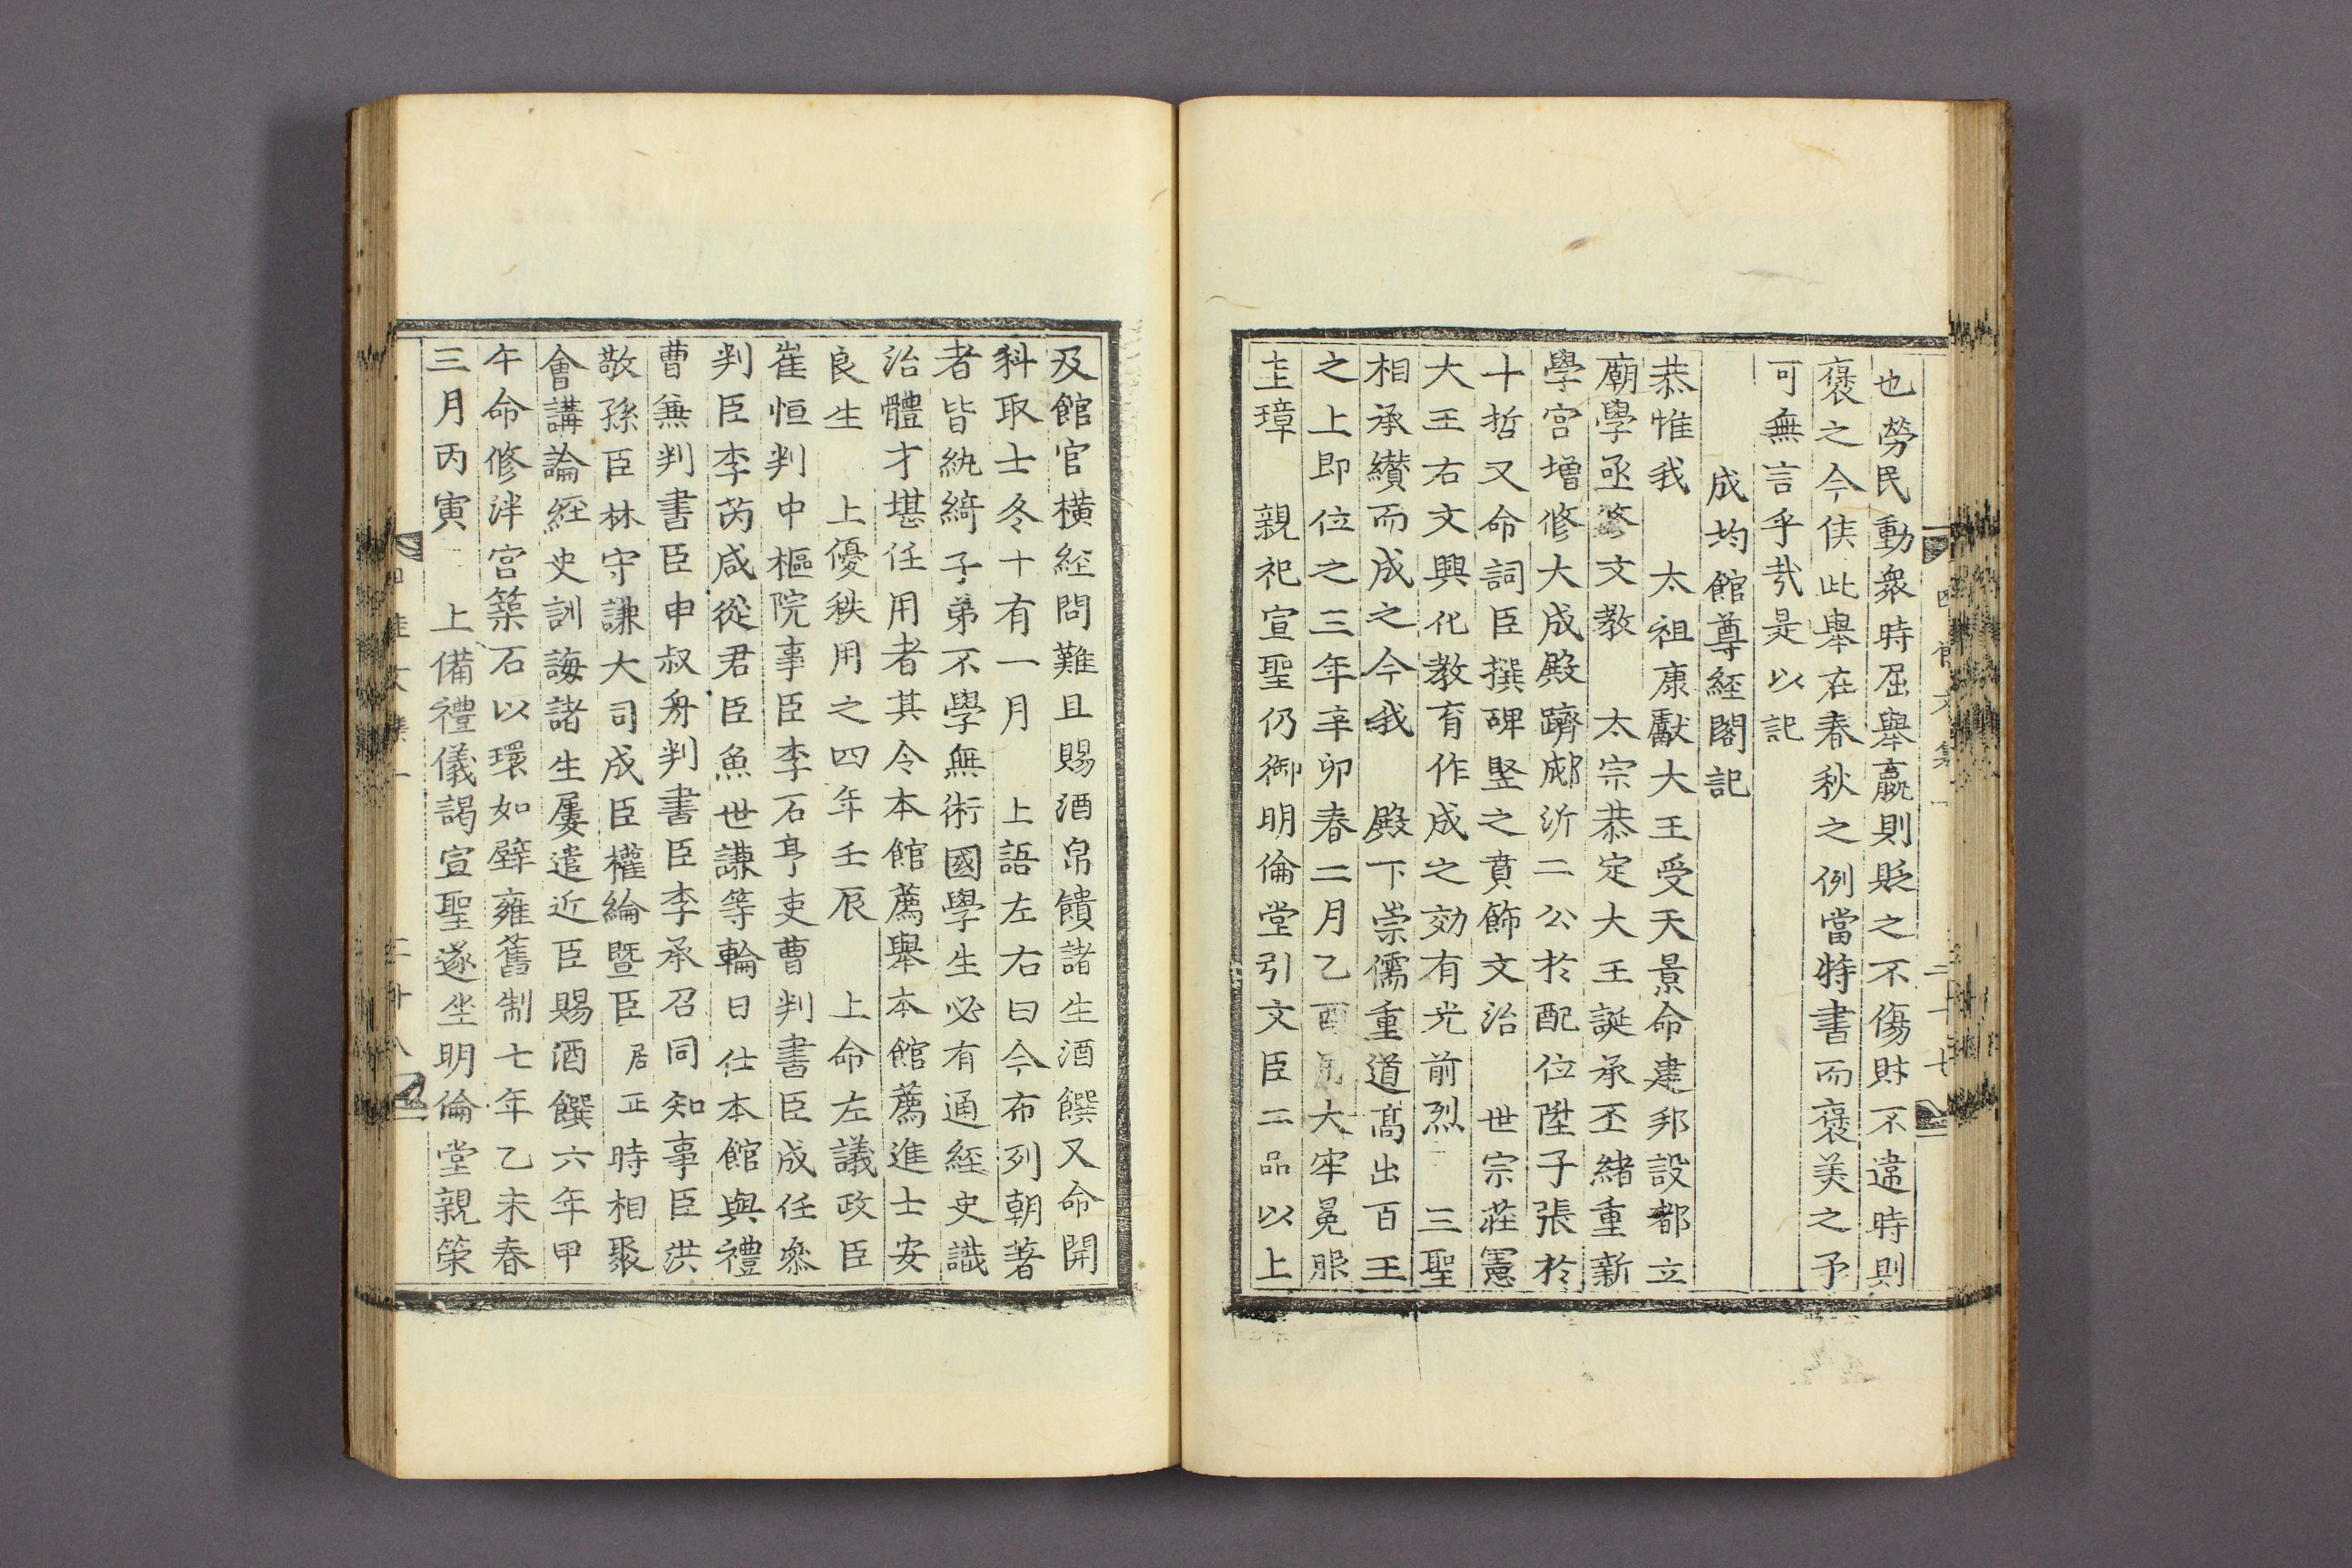 也勞民動衆時屈舉嬴則貶之不傷財不違時則
褒之今侯此舉在春秋之例當特書而褒美之予
可無言乎㢤是以記
成均館尊經閣記
恭惟我 太祖康獻大王受天景命建邦設都立
廟學亟修文教 太宗恭定大王誕承丕緒重新
學宮增修大成殿躋郕沂二公於配位陞子張於
十哲又命詞臣撰碑竪之賁飾文治 世宗莊憲
大王右文興化教育作成之効有光前烈 三聖
相承纉而成之今我 殿下崇儒重道髙出百王
之上即位之三年辛卯春二月乙酉 大牢冕服
圭璋 親祀宣聖仍御明倫堂引文臣二品以上
及館官橫經問難且賜酒帛饋諸生酒饌又命開
科取士冬十有一月 上語左右曰今布列朝著
者皆紈綺子弟不學無術國學生必有通經史識
治體才堪任用者其令本館薦舉本館薦進士安
良生 上優秩用之四年壬辰 上命左議政臣
崔恒判中樞院事臣李石亨吏曹判書臣成任叅
判臣李芮咸從君臣魚世謙等輪日仕本館與禮
曹無判書臣申叔舟判書臣李承召同知事臣洪
敬孫臣林守謙大司成臣權綸曁臣居正時相聚
會講論經史訓誨諸生屢遣近臣賜酒饌六年甲
午命修泮宮築石以環如辟雍舊制七年乙未春
三月丙寅 上備禮儀謁宣聖遂坐明倫堂親策